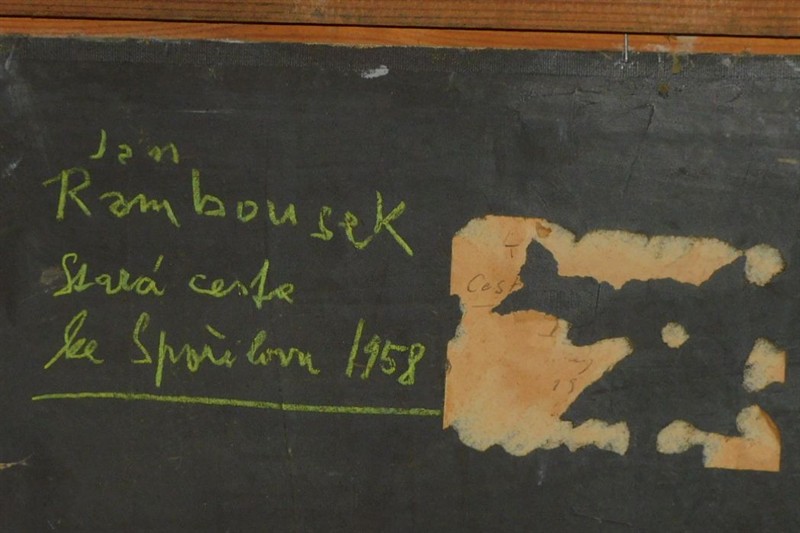 Jan
Rambousek
Stará cesta
ke Spořilovu 1958
Cest